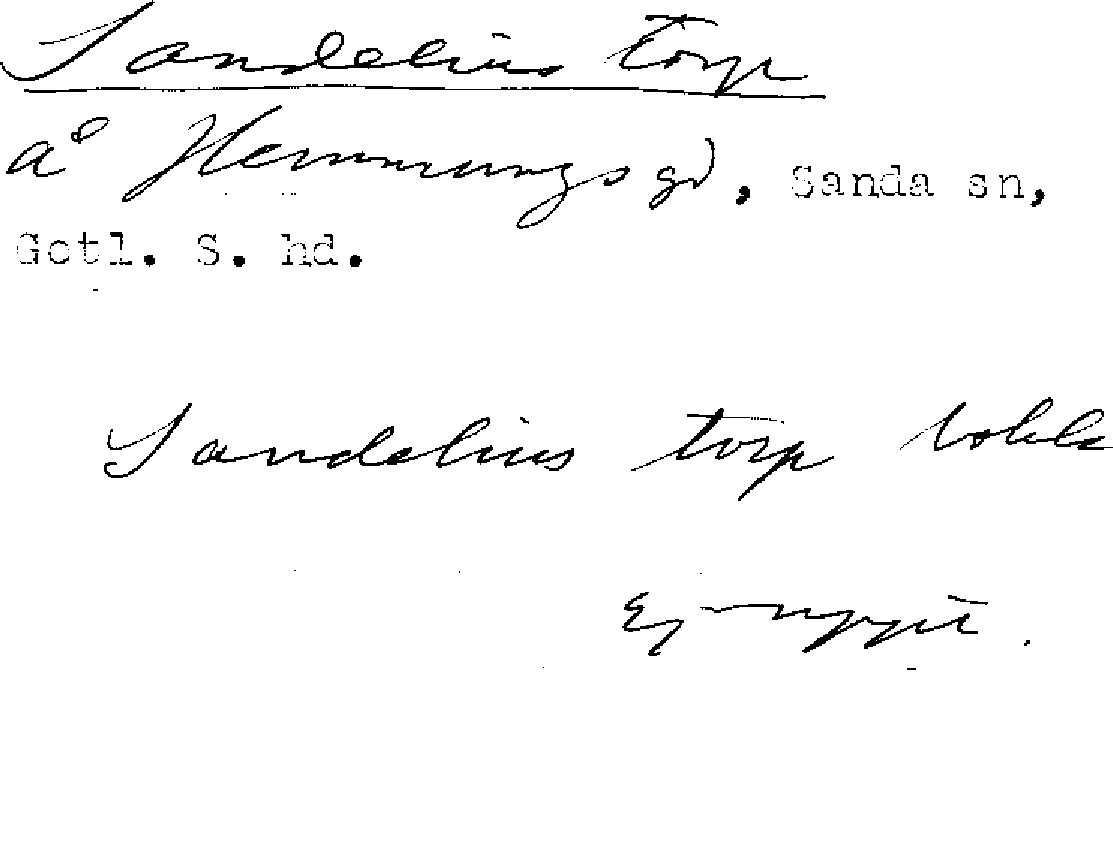 Sandelius torp
å Hemmungs gd, Sanda sn,
Gotl. S. hd.
Sandelius torp
Ej